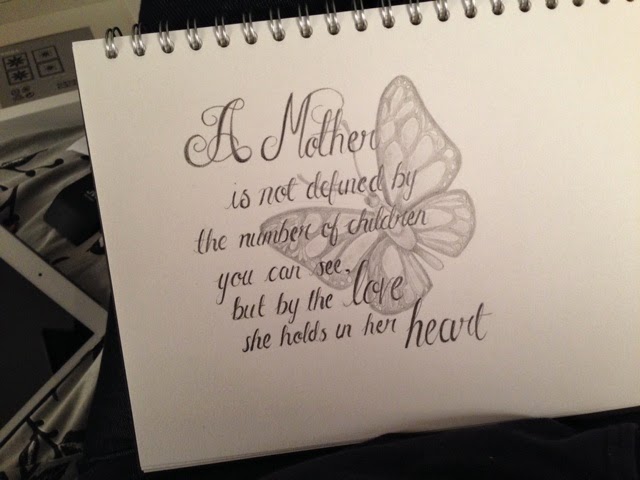 A Mother
is not defined by
the number of children
you can see,
but by the love
she holds in her heart